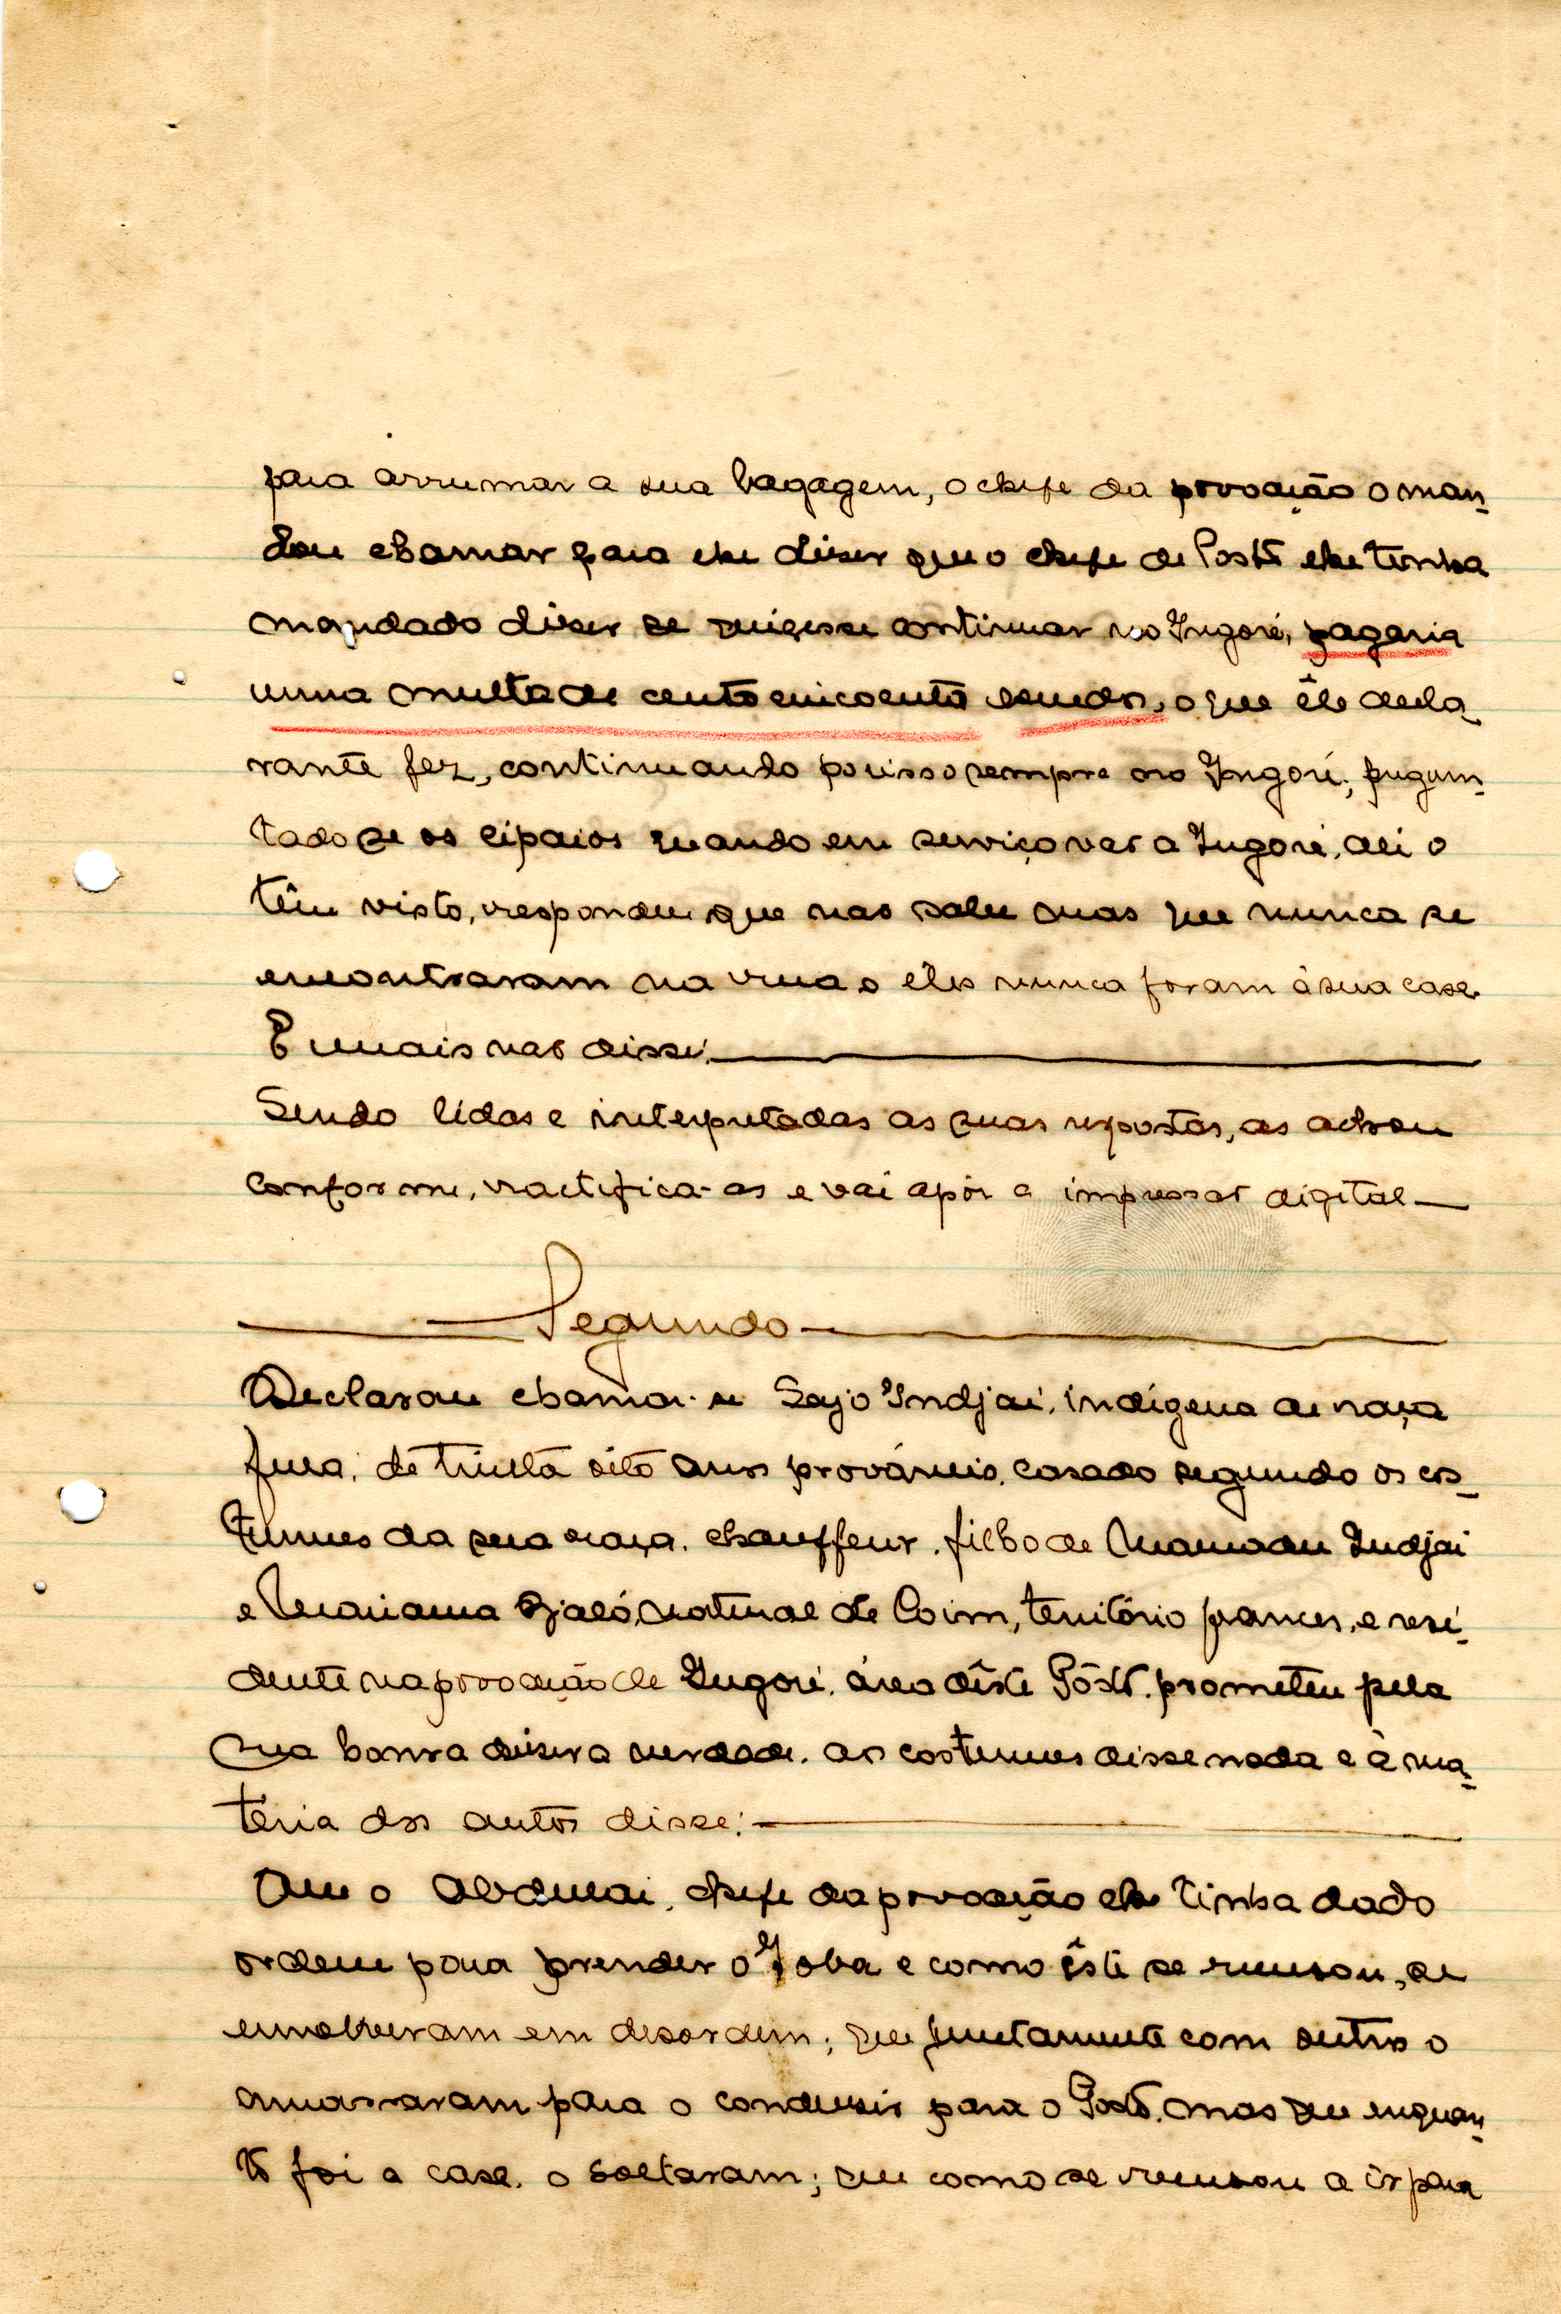 para arrumar a sua bagagem, o chefe da povoação o man-
dou chamar para lhe diser que o chefe de Posto lhe tinha
mandado diser se quisesse continuar no Ingoré, pagaria
uma multa de cento cincoenta escudos, o que êle decla-
rante fez, continuando por isso sempre no Ingoré; pregun-
tado se os cipaios quando em serviço vão a Ingoré, ali o
têm visto, respondeu que não sabe mas que nunca se
encontraram na rua e êles nunca foram à sua casa.
E mais não disse.
Sendo lidas e interpretadas as suas respostas, as achou
conforme, ractifica-as e vai apôr a impressão digital
Segundo
Declarou chamar-se Sajo Indjai, indígena de raça
fula, de trinta oito anos prováveis, casado segundo os cos-
tumes da sua raça, chauffeur, filho de Mamadu Indjai
e Mariama Djaló, natural de Coim, território francês, e resi-
dente na povoação de Ingoré, área dêste Pôsto, prometeu pela
sua honra diser a verdade. aos costumes disse nada e à ma-
téria dos autos disse:
Que o Abdulai, chefe da povoação lhe tinha dado
ordem para prender o Joba e como êste se recusou, se
envolveram em desordem; que juntamente com outros o
amarraram para o condusir para o Posto, mas que enquan-
to foi a casa, o soltaram; que como se recusou a ir para